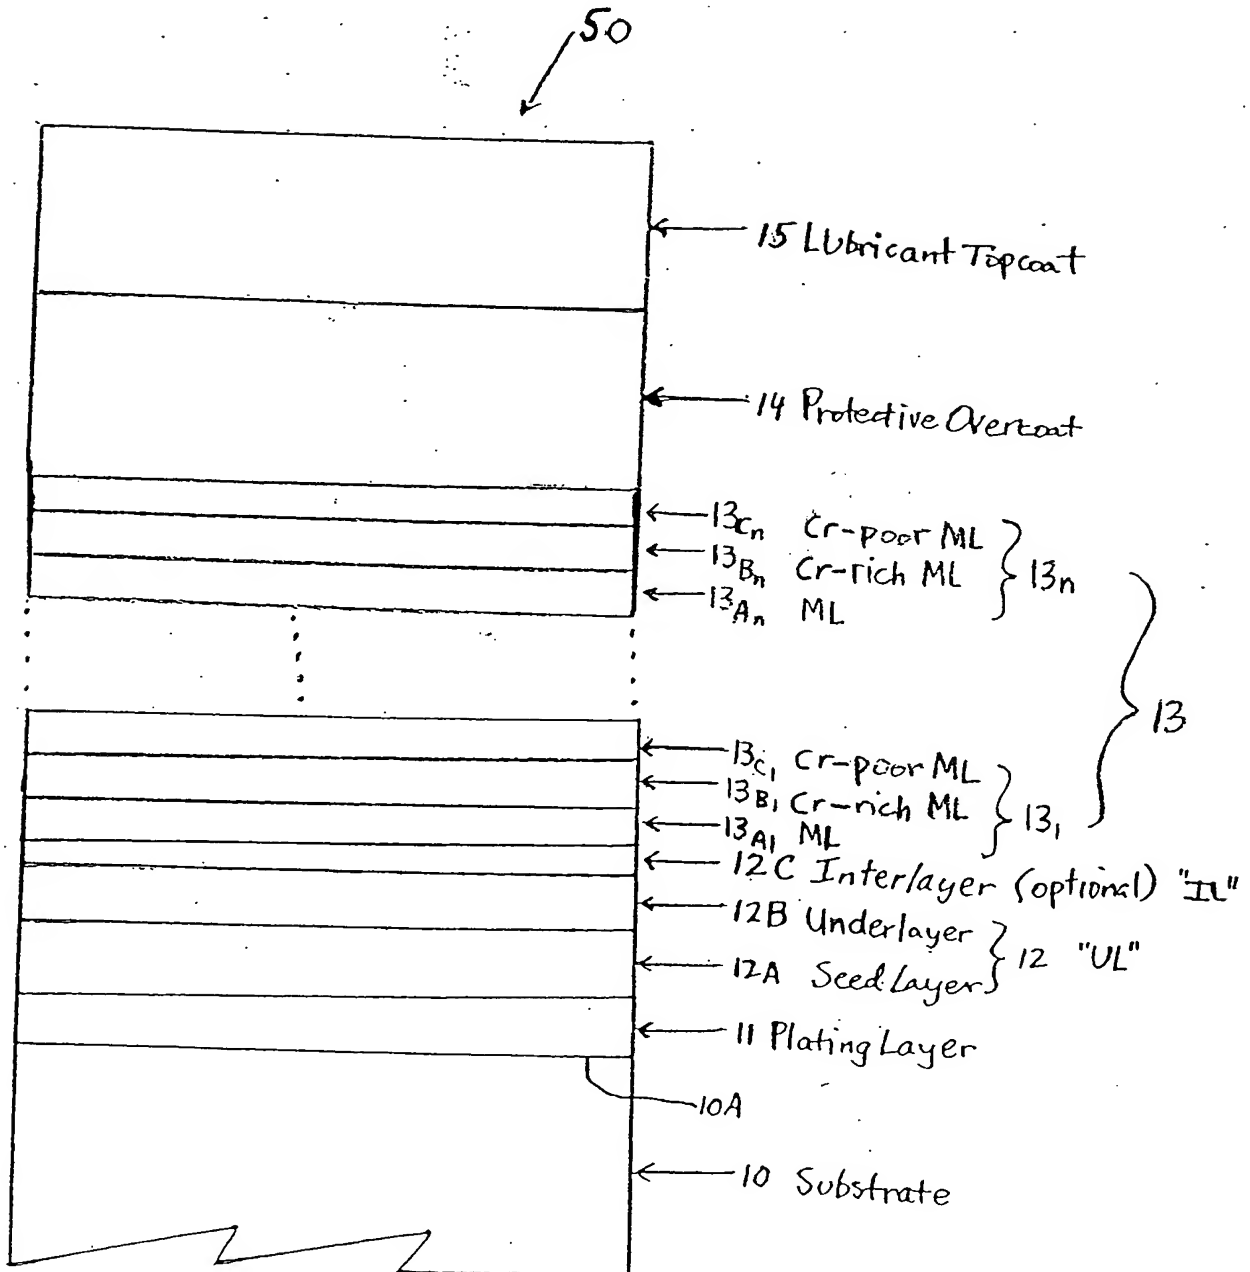 50
15 Lubricant Topcoat
14 Protective Overcoat
13Cn Cr-poor ML
13Bn Cr-rich ML } 13n
13An ML
13
13C1 Cr-poor ML
13B1 Cr-rich ML } 131
13A1 ML
12C Interlayer (optional) "IL"
12B Underlayer
12A Seed Layer } 12 "UL"
11 Plating Layer
10A
10 Substrate